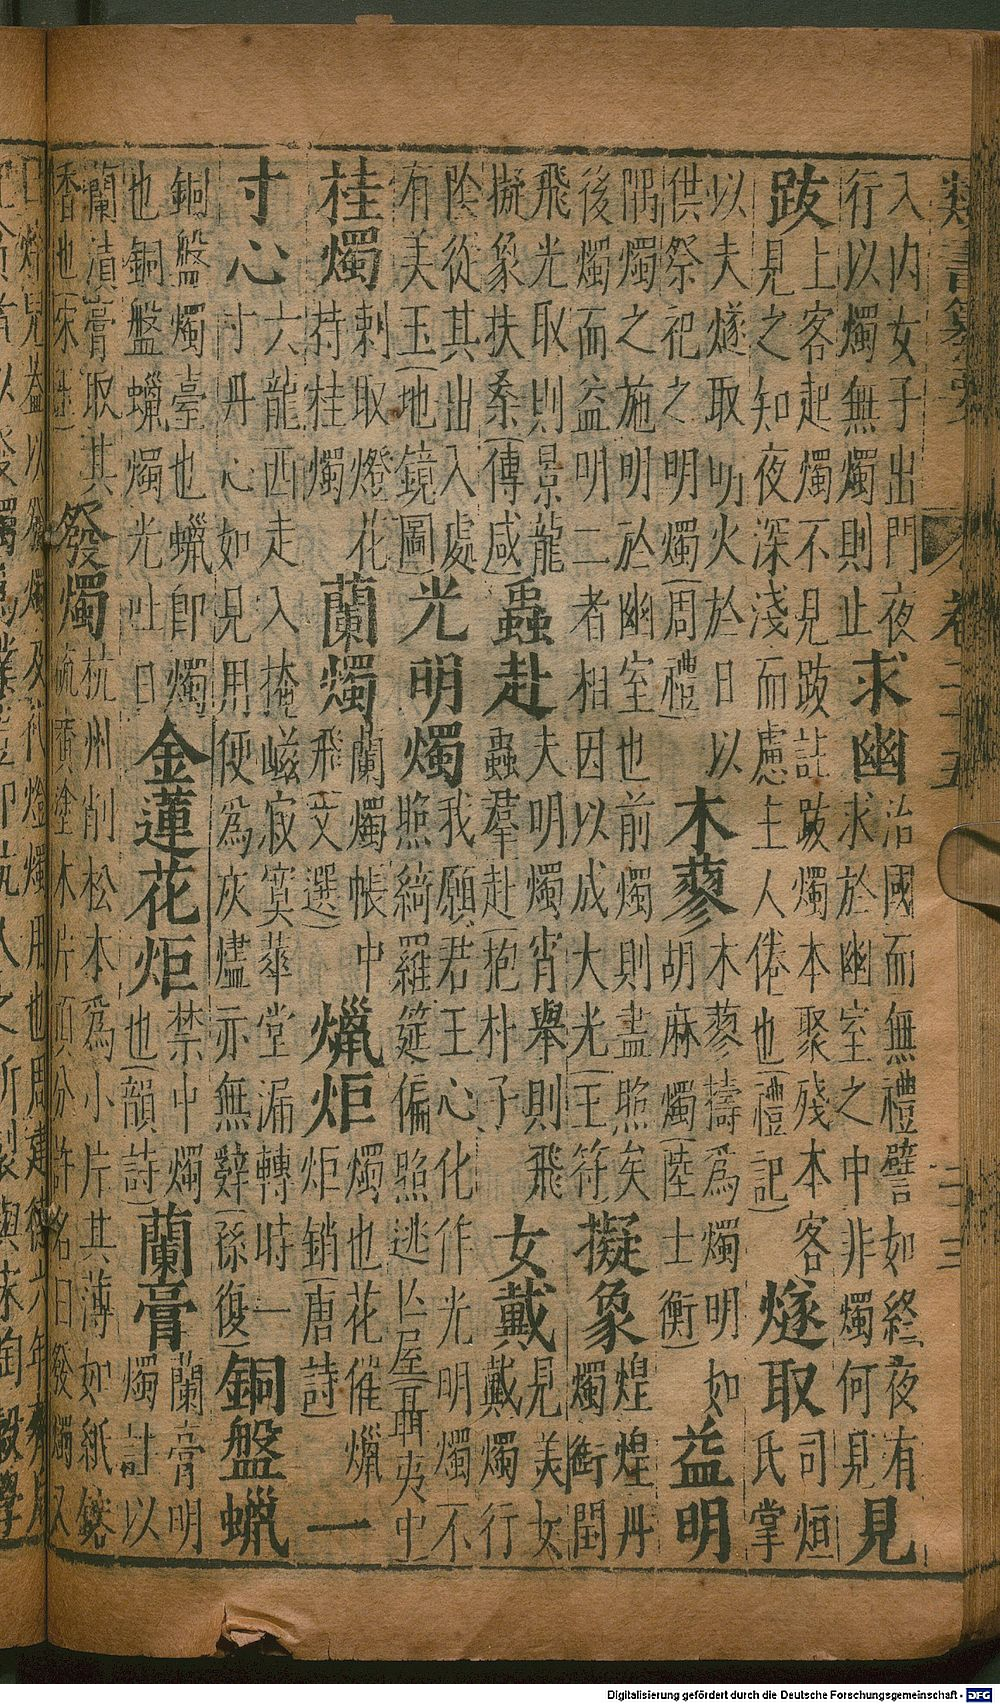 類書纂要 卷二十五 二三
入内女子出門夜行以燭無燭則止 求幽 治國而無禮譬如終夜有求於幽室之中非燭何見 見
跋 上客起燭不見跋註跋燭本聚殘本客見之知夜深淺而慮主人倦也(禮記) 燧取 司烜氏掌
以夫燧取明火於日以供祭祀之明燭(周禮) 木蓼 木蓼擣為燭明如胡麻燭(陸士衡) 益明
隅燭之施明於幽室也前燭則盡照矣後燭而益明二者相因以成大光(王符) 擬象 煌煌丹燭
飛光取則景龍擬象扶桑(傳咸) 蟲赴 夫明燭宵舉則飛蟲羣赴(抱朴子) 女戴 見美女戴燭行
陰從其出入處有美玉(地鏡圖) 光明燭 我願君王心化作光明燭不照綺羅筵偏照逃亾屋(聶夷中)
桂燭 刺取燈花持桂燭 蘭燭 蘭燭帳中飛(文選) 爉炬 燭也花催爉炬銷(唐詩) 一
寸心 六龍西走入掩嵫寂寞華堂漏轉時一寸丹心如見用便為灰燼亦無辭(孫復) 銅盤蠟
銅盤燭臺也蠟卽燭也銅盤蠟燭光吐日 金蓮花炬 禁中燭也(韻詩) 蘭膏 蘭膏明燭註以
蘭漬膏取其香也(宋玉) 發燭 杭州削松木為小片其薄如紙鎔硫黃塗木片頂分許名曰發燭又
曰焠兒蓋以發燭及代燈燭用也周建德六年齊后
Digitalisierung gefördert durch die Deutsche Forschungsgemeinschaft - DFG